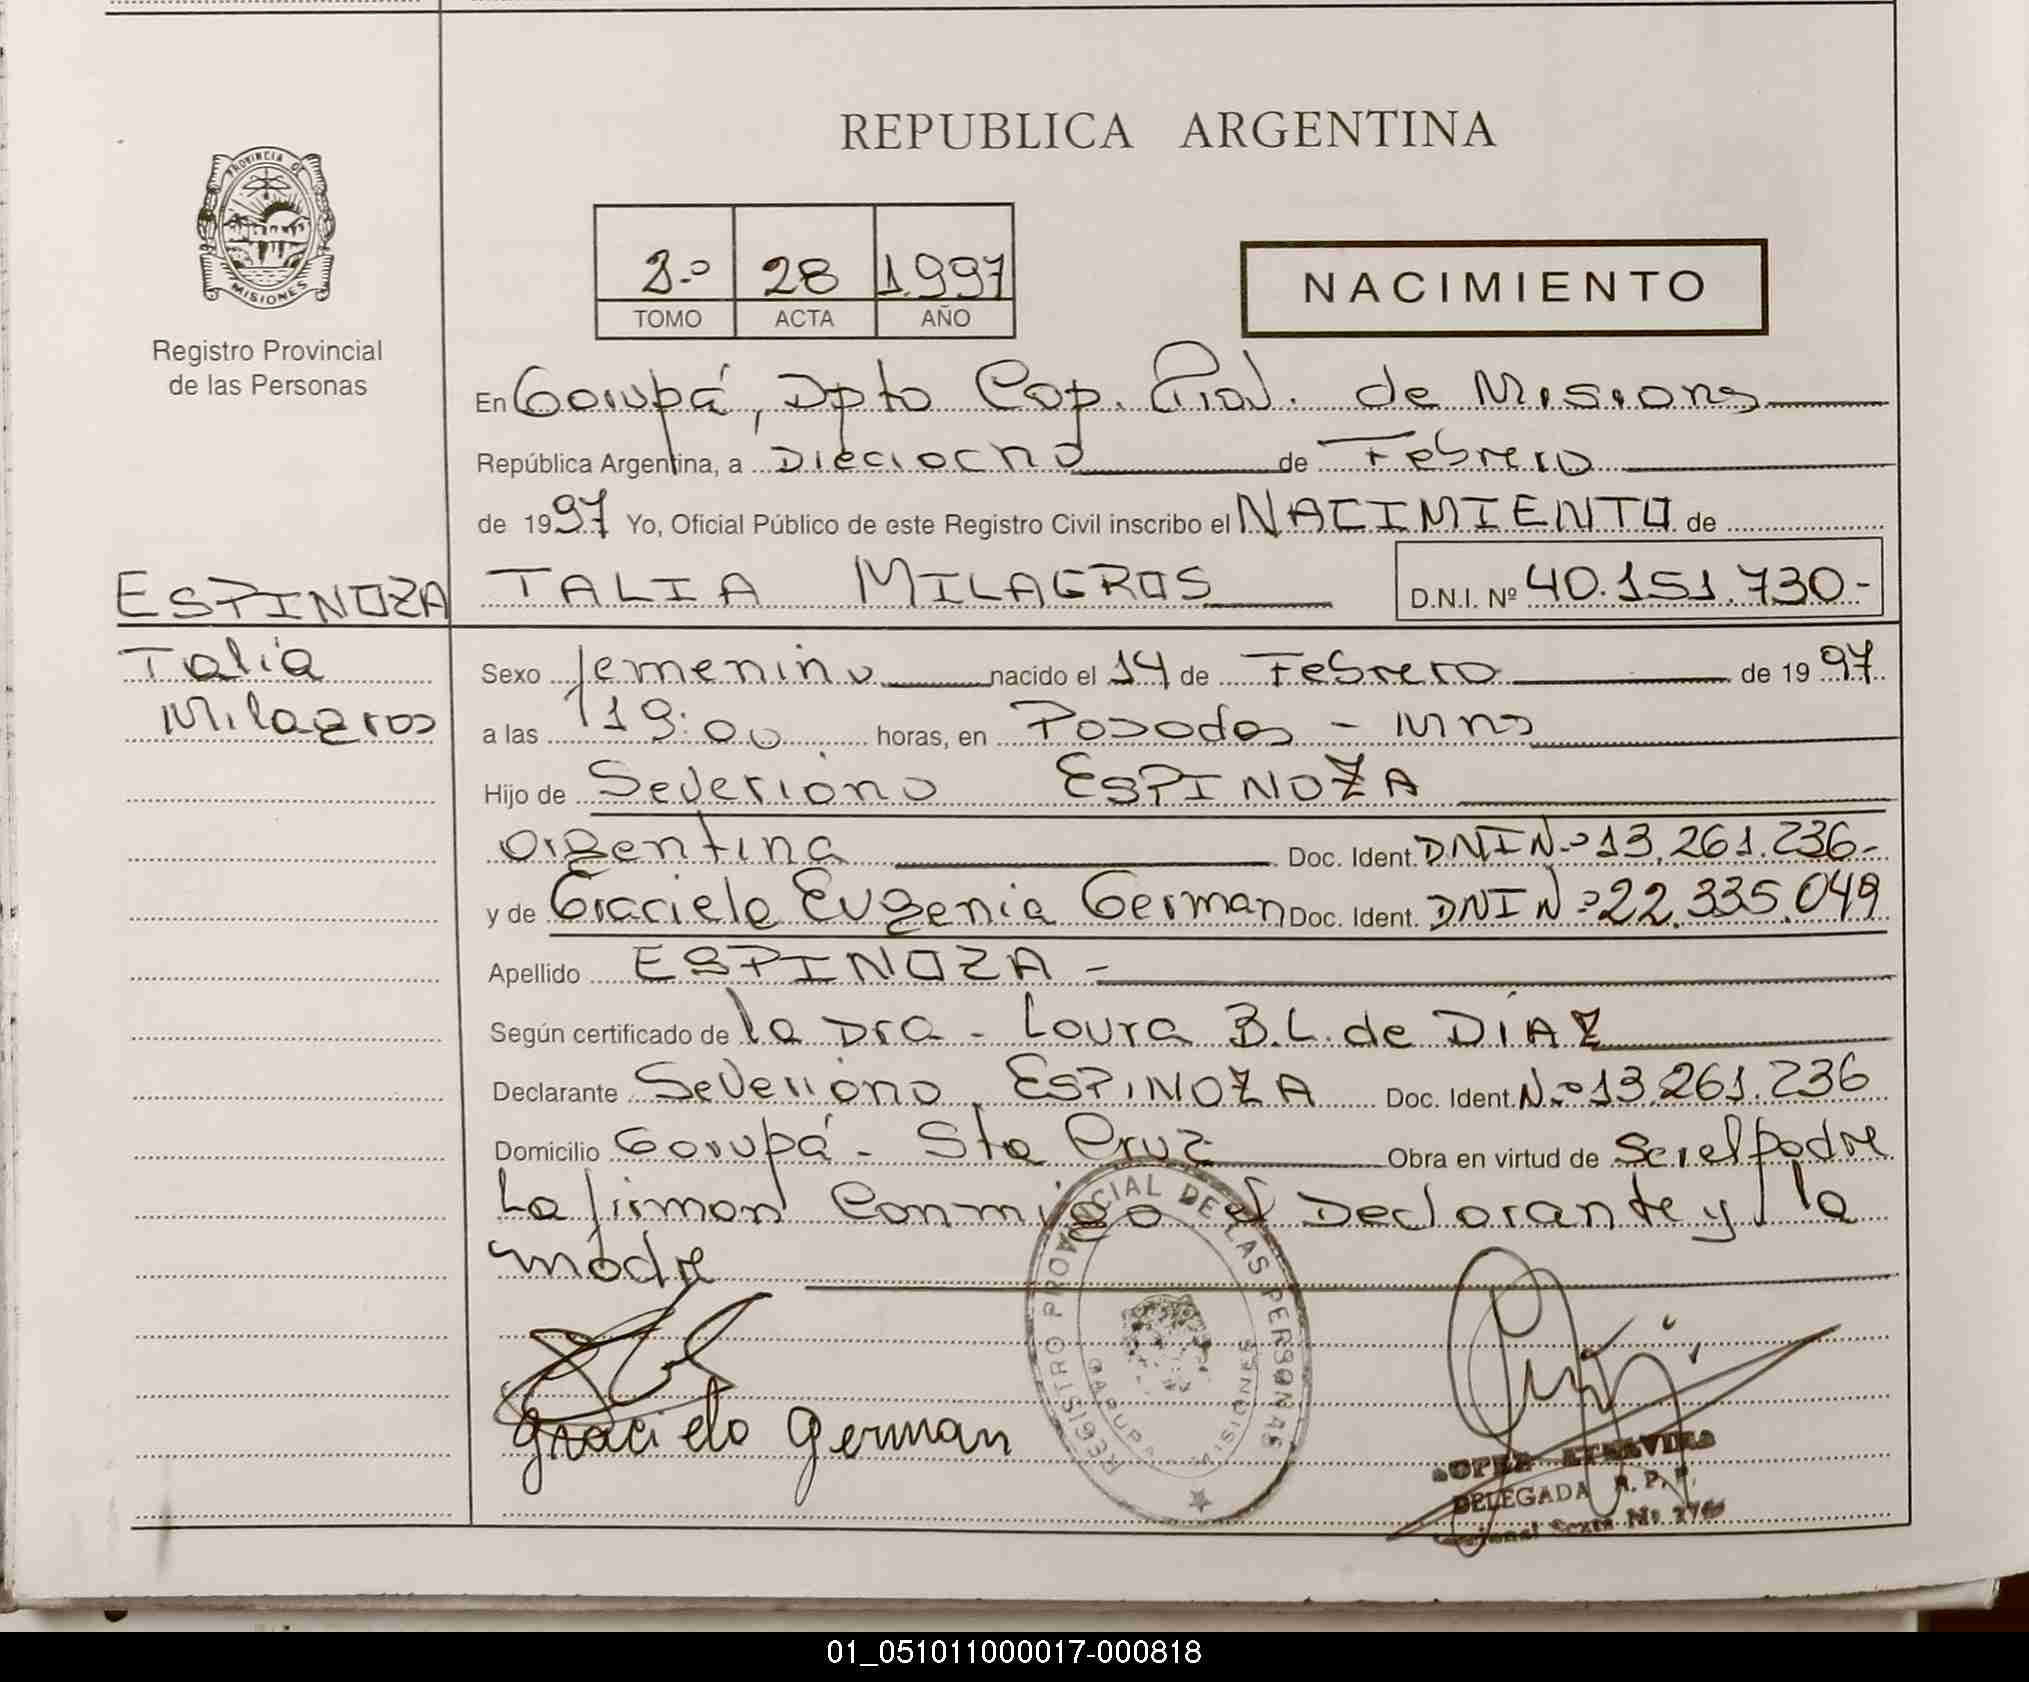 REPUBLICA ARGENTINA
PROVINCIA DE
MISIONES
Registro Provincial
de las Personas
28 1.997
TOMO ACTA AÑO
NACIMIENTO
En Garupá, Dpto Cap. Prov. de Misiones
República Argentina, a Dieciocho de Febrero
de 1997 Yo, Oficial Público de este Registro Civil inscribo el NACIMIENTO de
ESPINOZA TALIA MILAGROS D.N.I. Nº 40.151.730-
Talia
Milagros
Sexo femenino nacido el 14 de Febrero de 1997
a las 19:00 horas, en Posadas - Mnes
Hijo de Severiano ESPINOZA
argentina Doc. Ident. DNI Nº 13.261.236-
y de Graciela Eugenia German Doc. Ident. DNI Nº 22.335.049
Apellido ESPINOZA -
Según certificado de la Dra - Laura B.L. de DIAZ
Declarante Severiano ESPINOZA Doc. Ident. Nº 13.261.236
Domicilio Garupá - Sta Cruz Obra en virtud de Ser el padre
La firman Conmigo el Declarante y la
madre
Graciela German
REGISTRO PROVINCIAL DE LAS PERSONAS
GARUPA MISIONES
DELEGADA R. P. P.
01_051011000017-000818